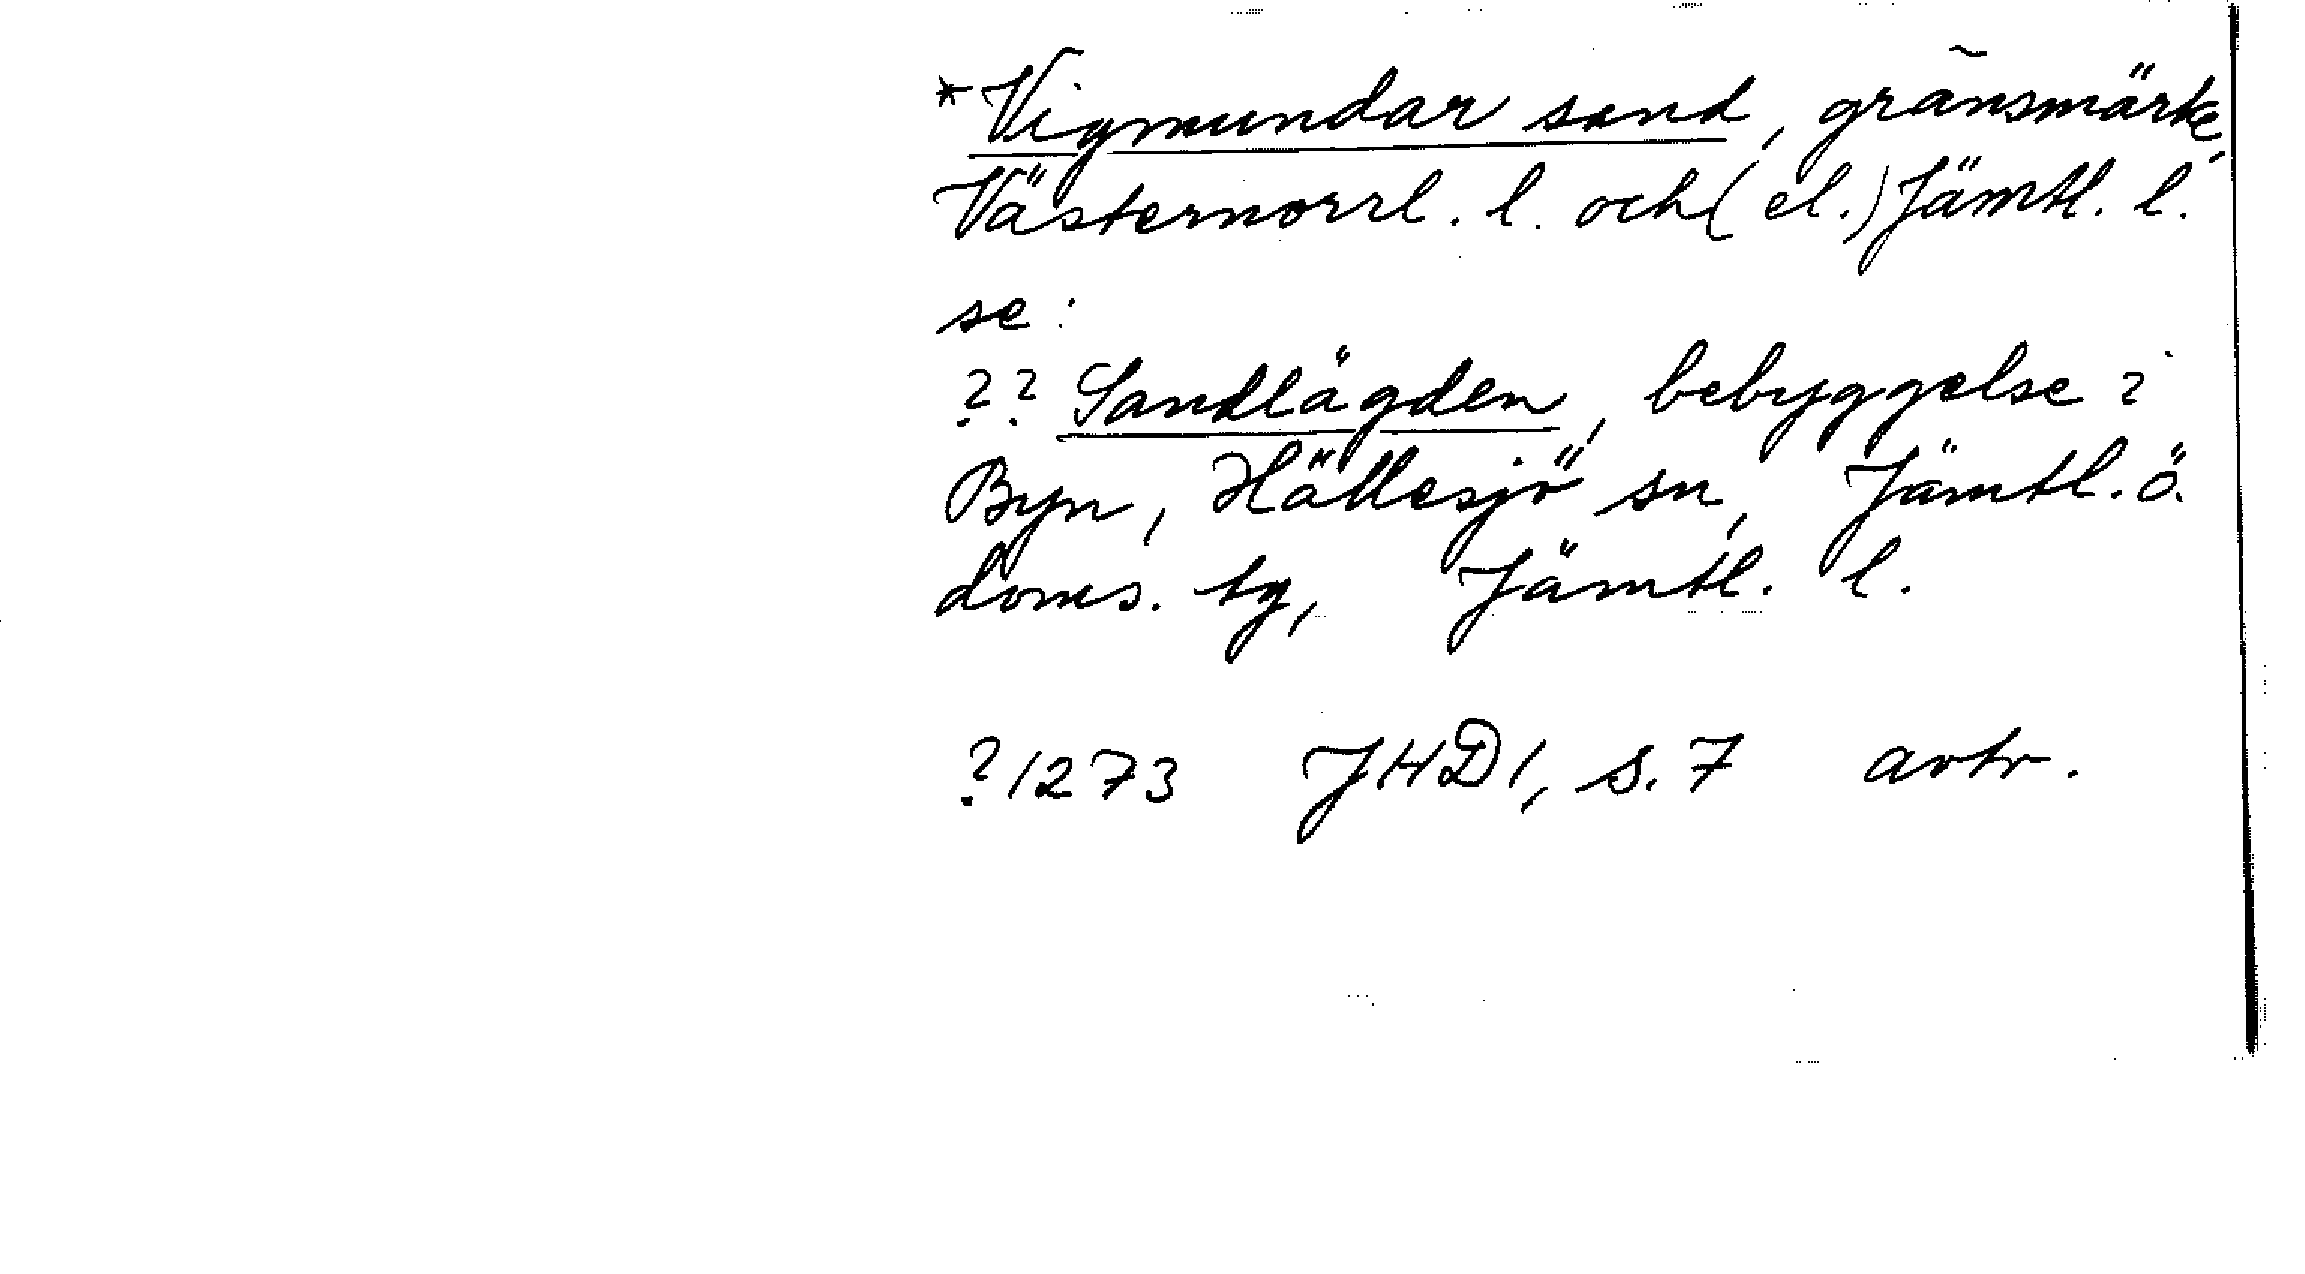 *Vigmundar sand, gränsmärke,
Västernorrl. l. och (el.) Jämtl. l.
se:
?? Sandlägden, bebyggelse i
Byn, Hällesjö sn, Jämtl. ö.
doms. tg, Jämtl. l.
?1273 JHD 1, s. 7 avtr.